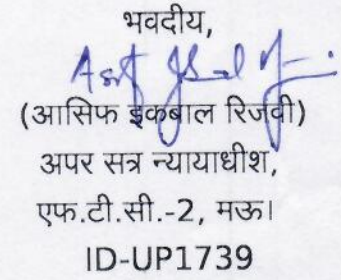 भवदीय,
(आसिफ इकबाल रिजवी)
अपर सत्र न्यायाधीश,
एफ.टी.सी.-2, मऊ।
ID-UP1739